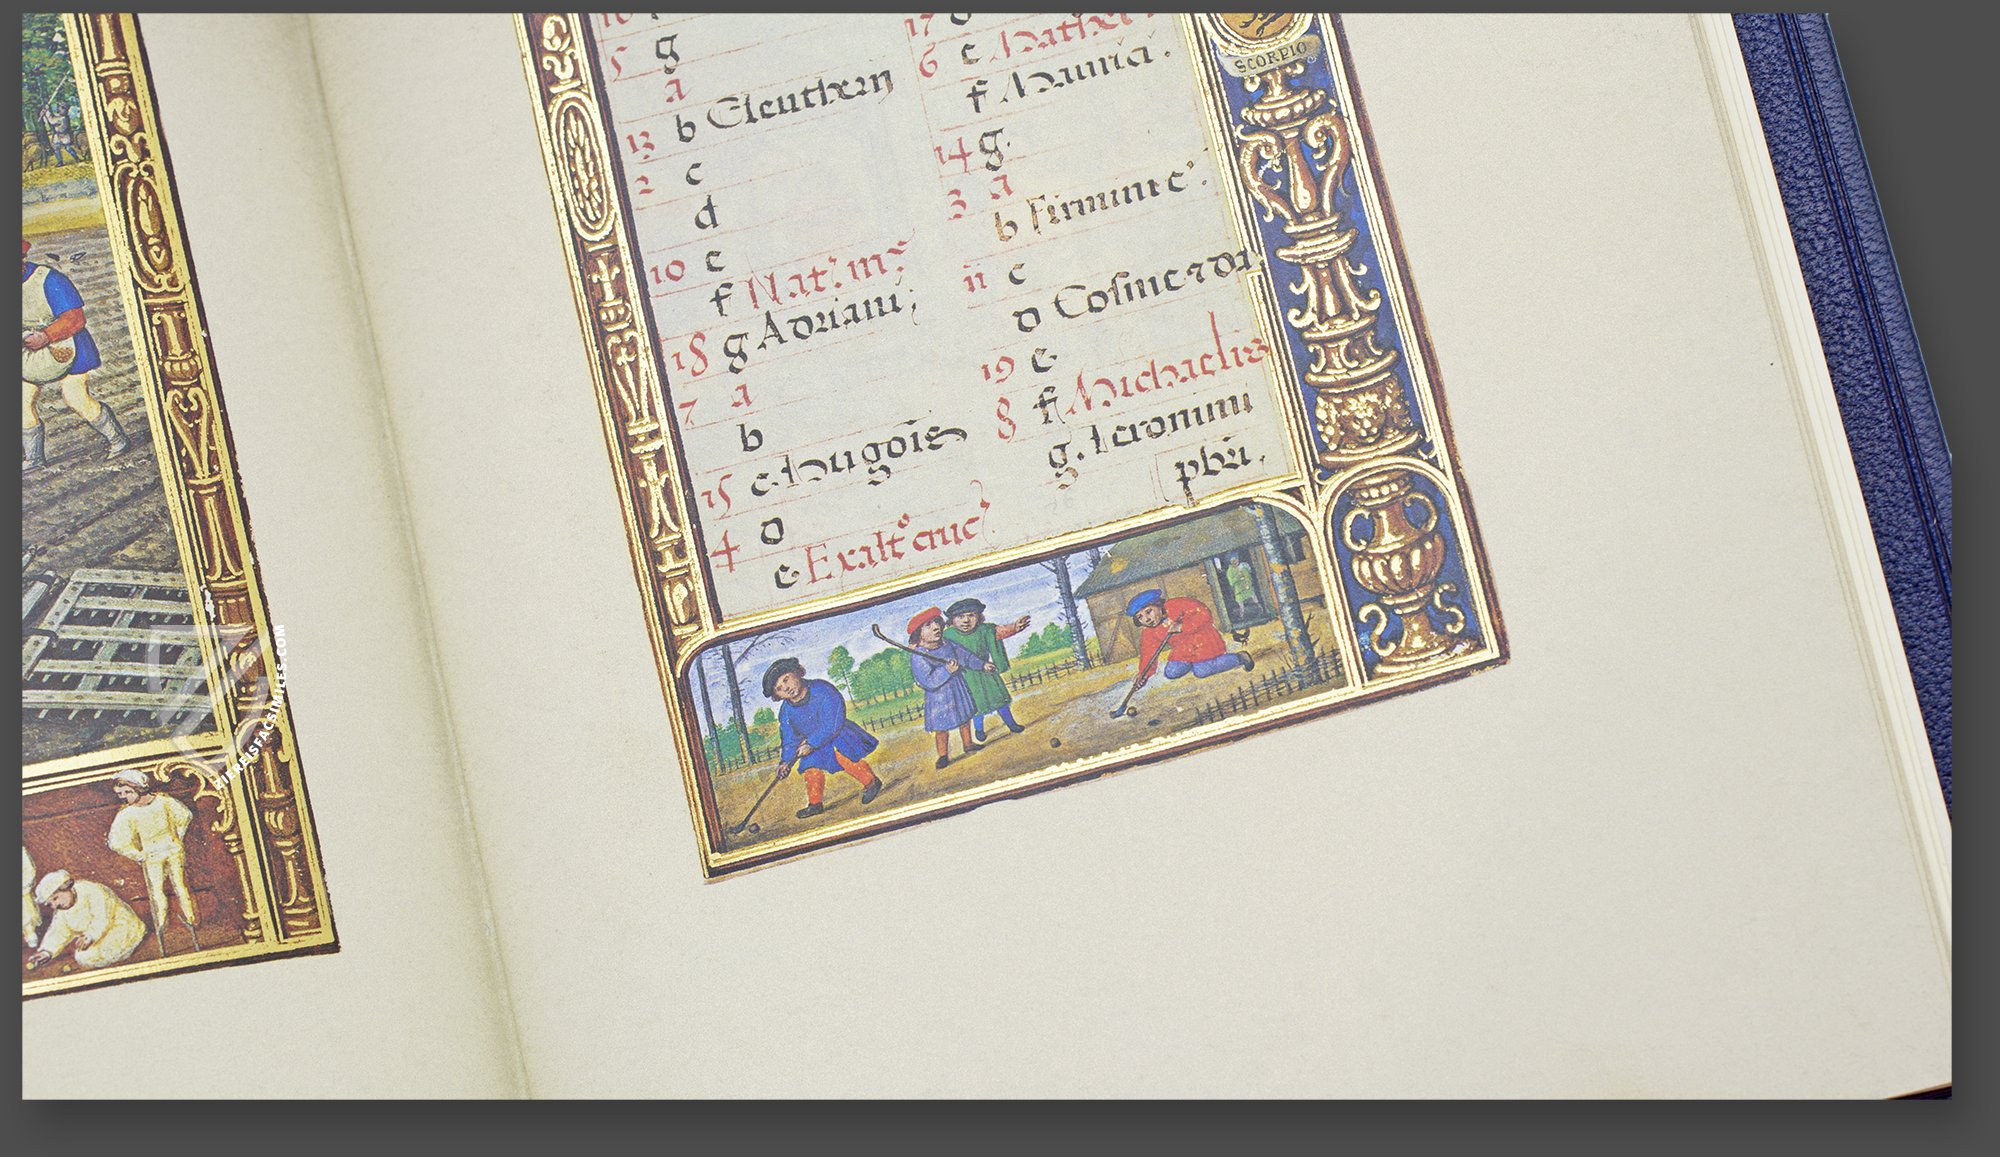 5 g
a
13 b Eleutherii
2 c
d
10 e
f Nat. m
18 g Adriani
7 a
b
15 c Hugois
4 d
e Exalt° cruc
17
6 e Mathei
f Mauricii
14 g.
3 a
b Firmini e
ii c
d Cosme & da
19 e
8 f Michaelis
g. Ieronimi
pbri.
SCORPIO
ZIEREISFACSIMILES.COM